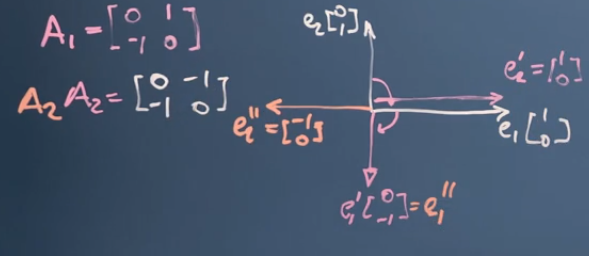 A₁ = [0 1
-1 0]
A₂ A₂ = [0 -1
-1 0]
e₂ [0
1]
e₂' = [1
0]
e₁'' = [-1
0]
e₁ [1
0]
e₁' [0
-1] = e₁''